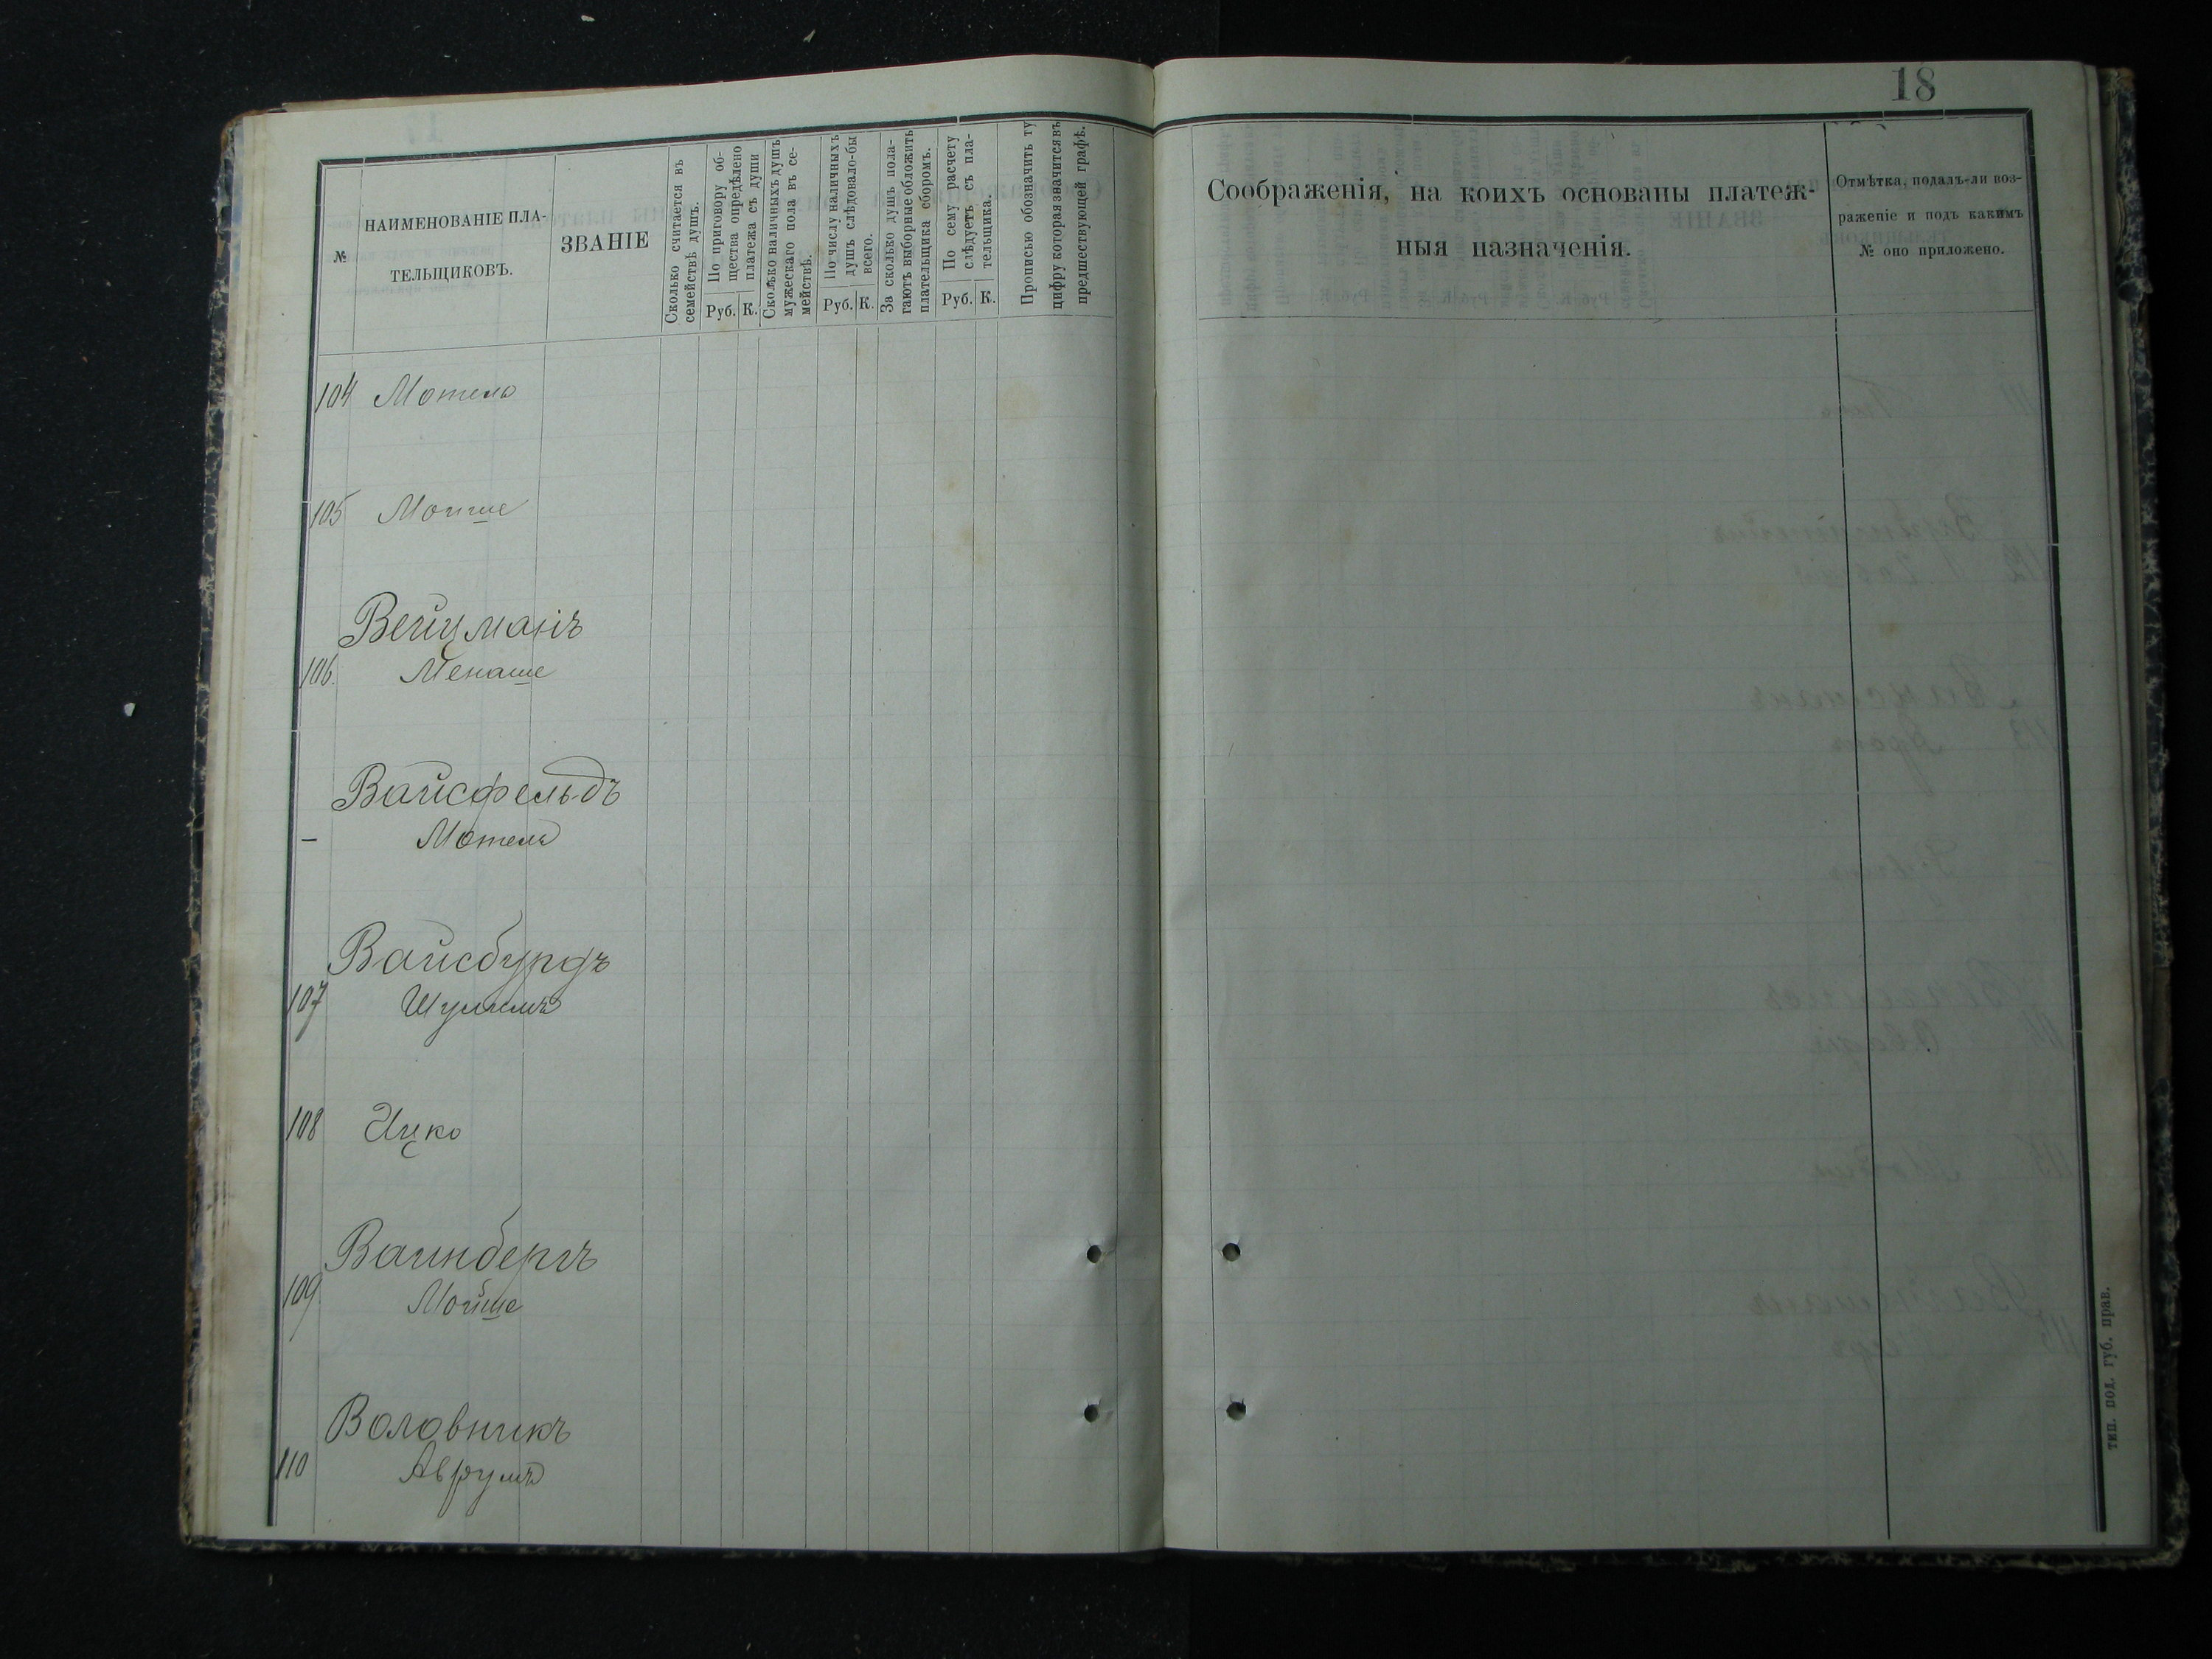 18
№
НАИМЕНОВАНІЕ ПЛА-
ТЕЛЬЩИКОВЪ.
ЗВАНІЕ
Сколько считается въ
семействѣ душъ.
По приговору об-
щества опредѣлено
платежа съ души
Руб. К.
Сколько наличныхъ душъ
мужескаго пола въ се-
мействѣ.
По числу наличныхъ
душъ слѣдовало-бы
всего.
Руб. К.
За сколько душъ пола-
гаютъ выборные обложить
плательщика сборомъ.
По сему расчету
слѣдуетъ съ пла-
тельщика.
Руб. К.
Прописью обозначить ту
цифру которая значится въ
предшествующей графѣ.
Соображенія, на коихъ основаны платеж-
ныя назначенія.
Отмѣтка, подалъ-ли воз-
раженіе и подъ какимъ
№ оно приложено.
104 Мотель
105 Мойше
Вейцманъ
106. Менаше
Вайсфельдъ
— Мотель
Вайсбурдъ
107 Шулимъ
108 Ицко
Ваинбергъ
109 Мойше
Воловникъ
110 Аврумъ
тип. под. губ. прав.